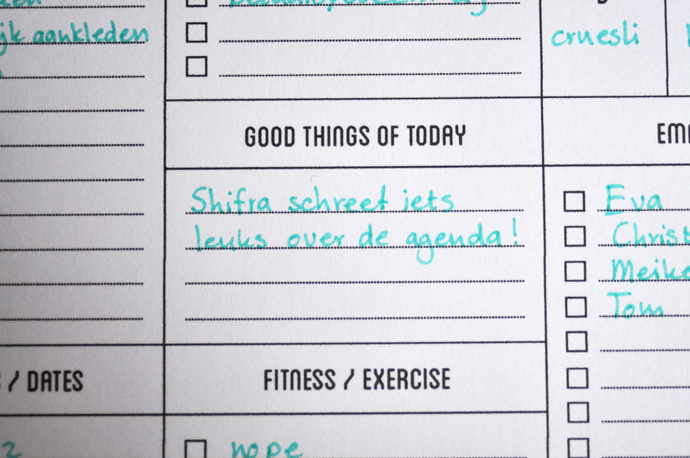 aankleden
cruesli
GOOD THINGS OF TODAY
Shifra schreef iets
leuks over de agenda!
Eva
Meike
Tom
/ DATES
FITNESS / EXERCISE
nope